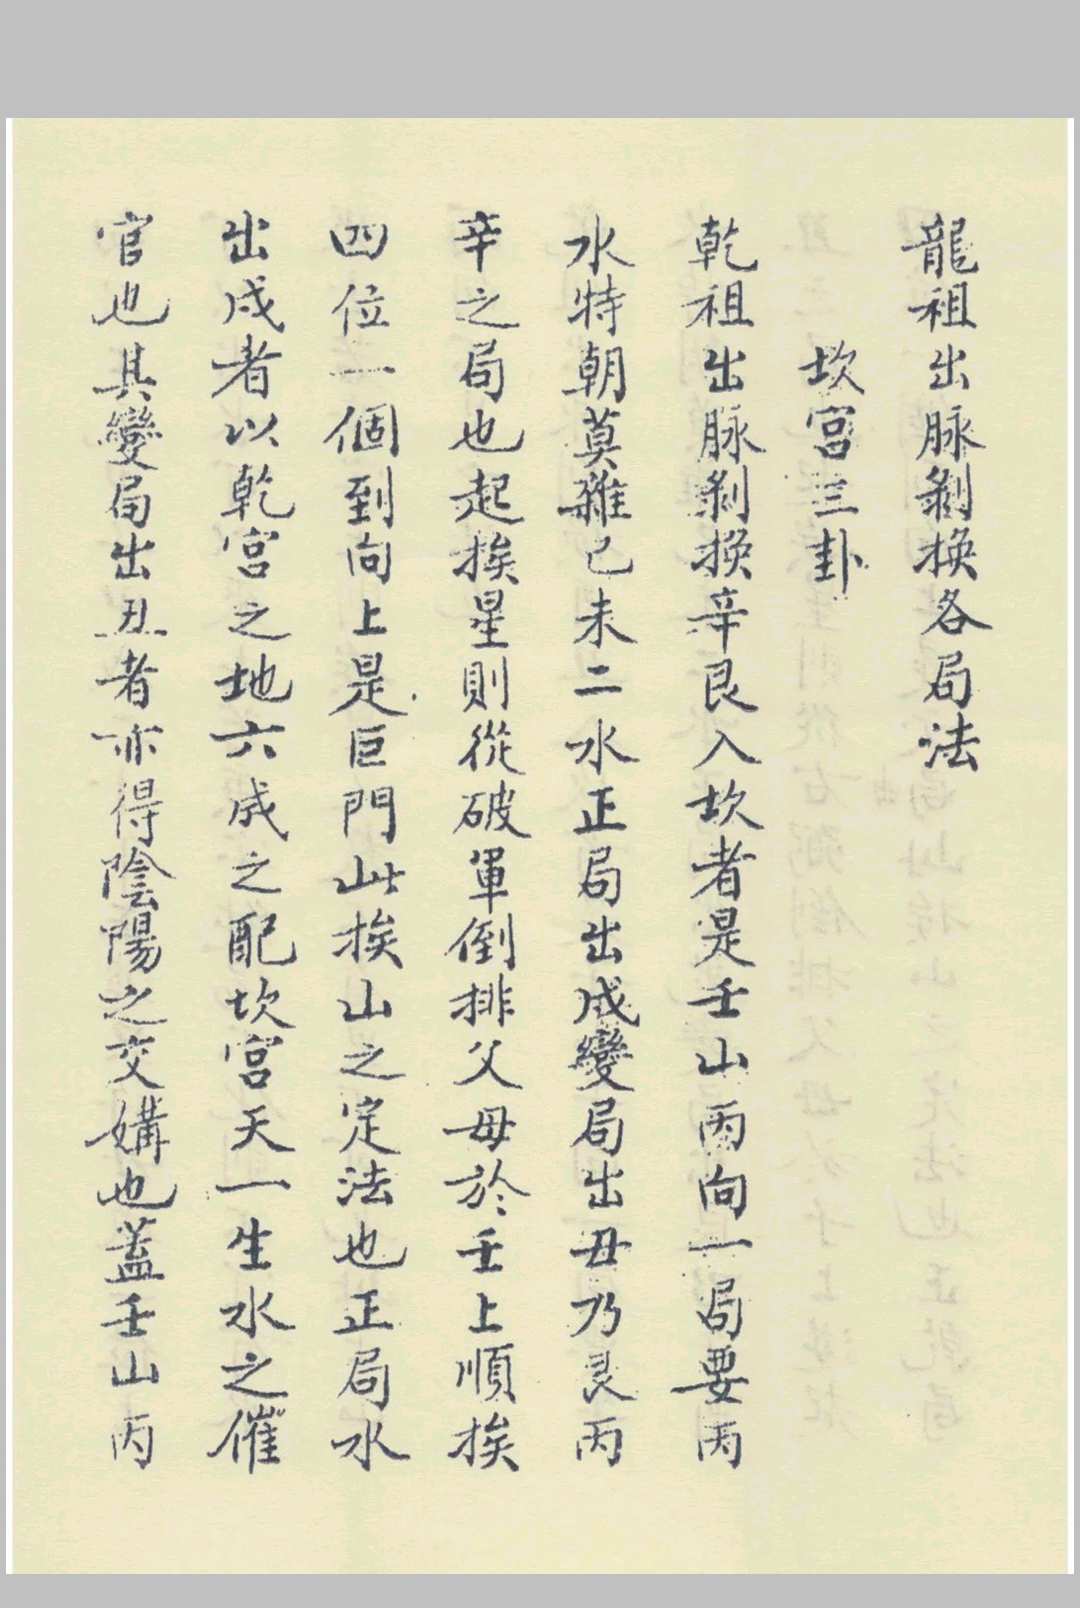 龍祖出脉剝換各局法
坎宮三卦
乾祖出脉剝換辛艮入坎者是壬山丙向一局要丙
水特朝莫雜己未二水正局出戍變局出丑乃艮丙
辛之局也起挨星則從破軍倒排父母於壬上順挨
四位一個到向上是巨門此挨山之定法也正局水
出戍者以乾宮之地六成之配坎宮天一生水之催
官也其變局出丑者亦得陰陽之交媾也蓋壬山丙